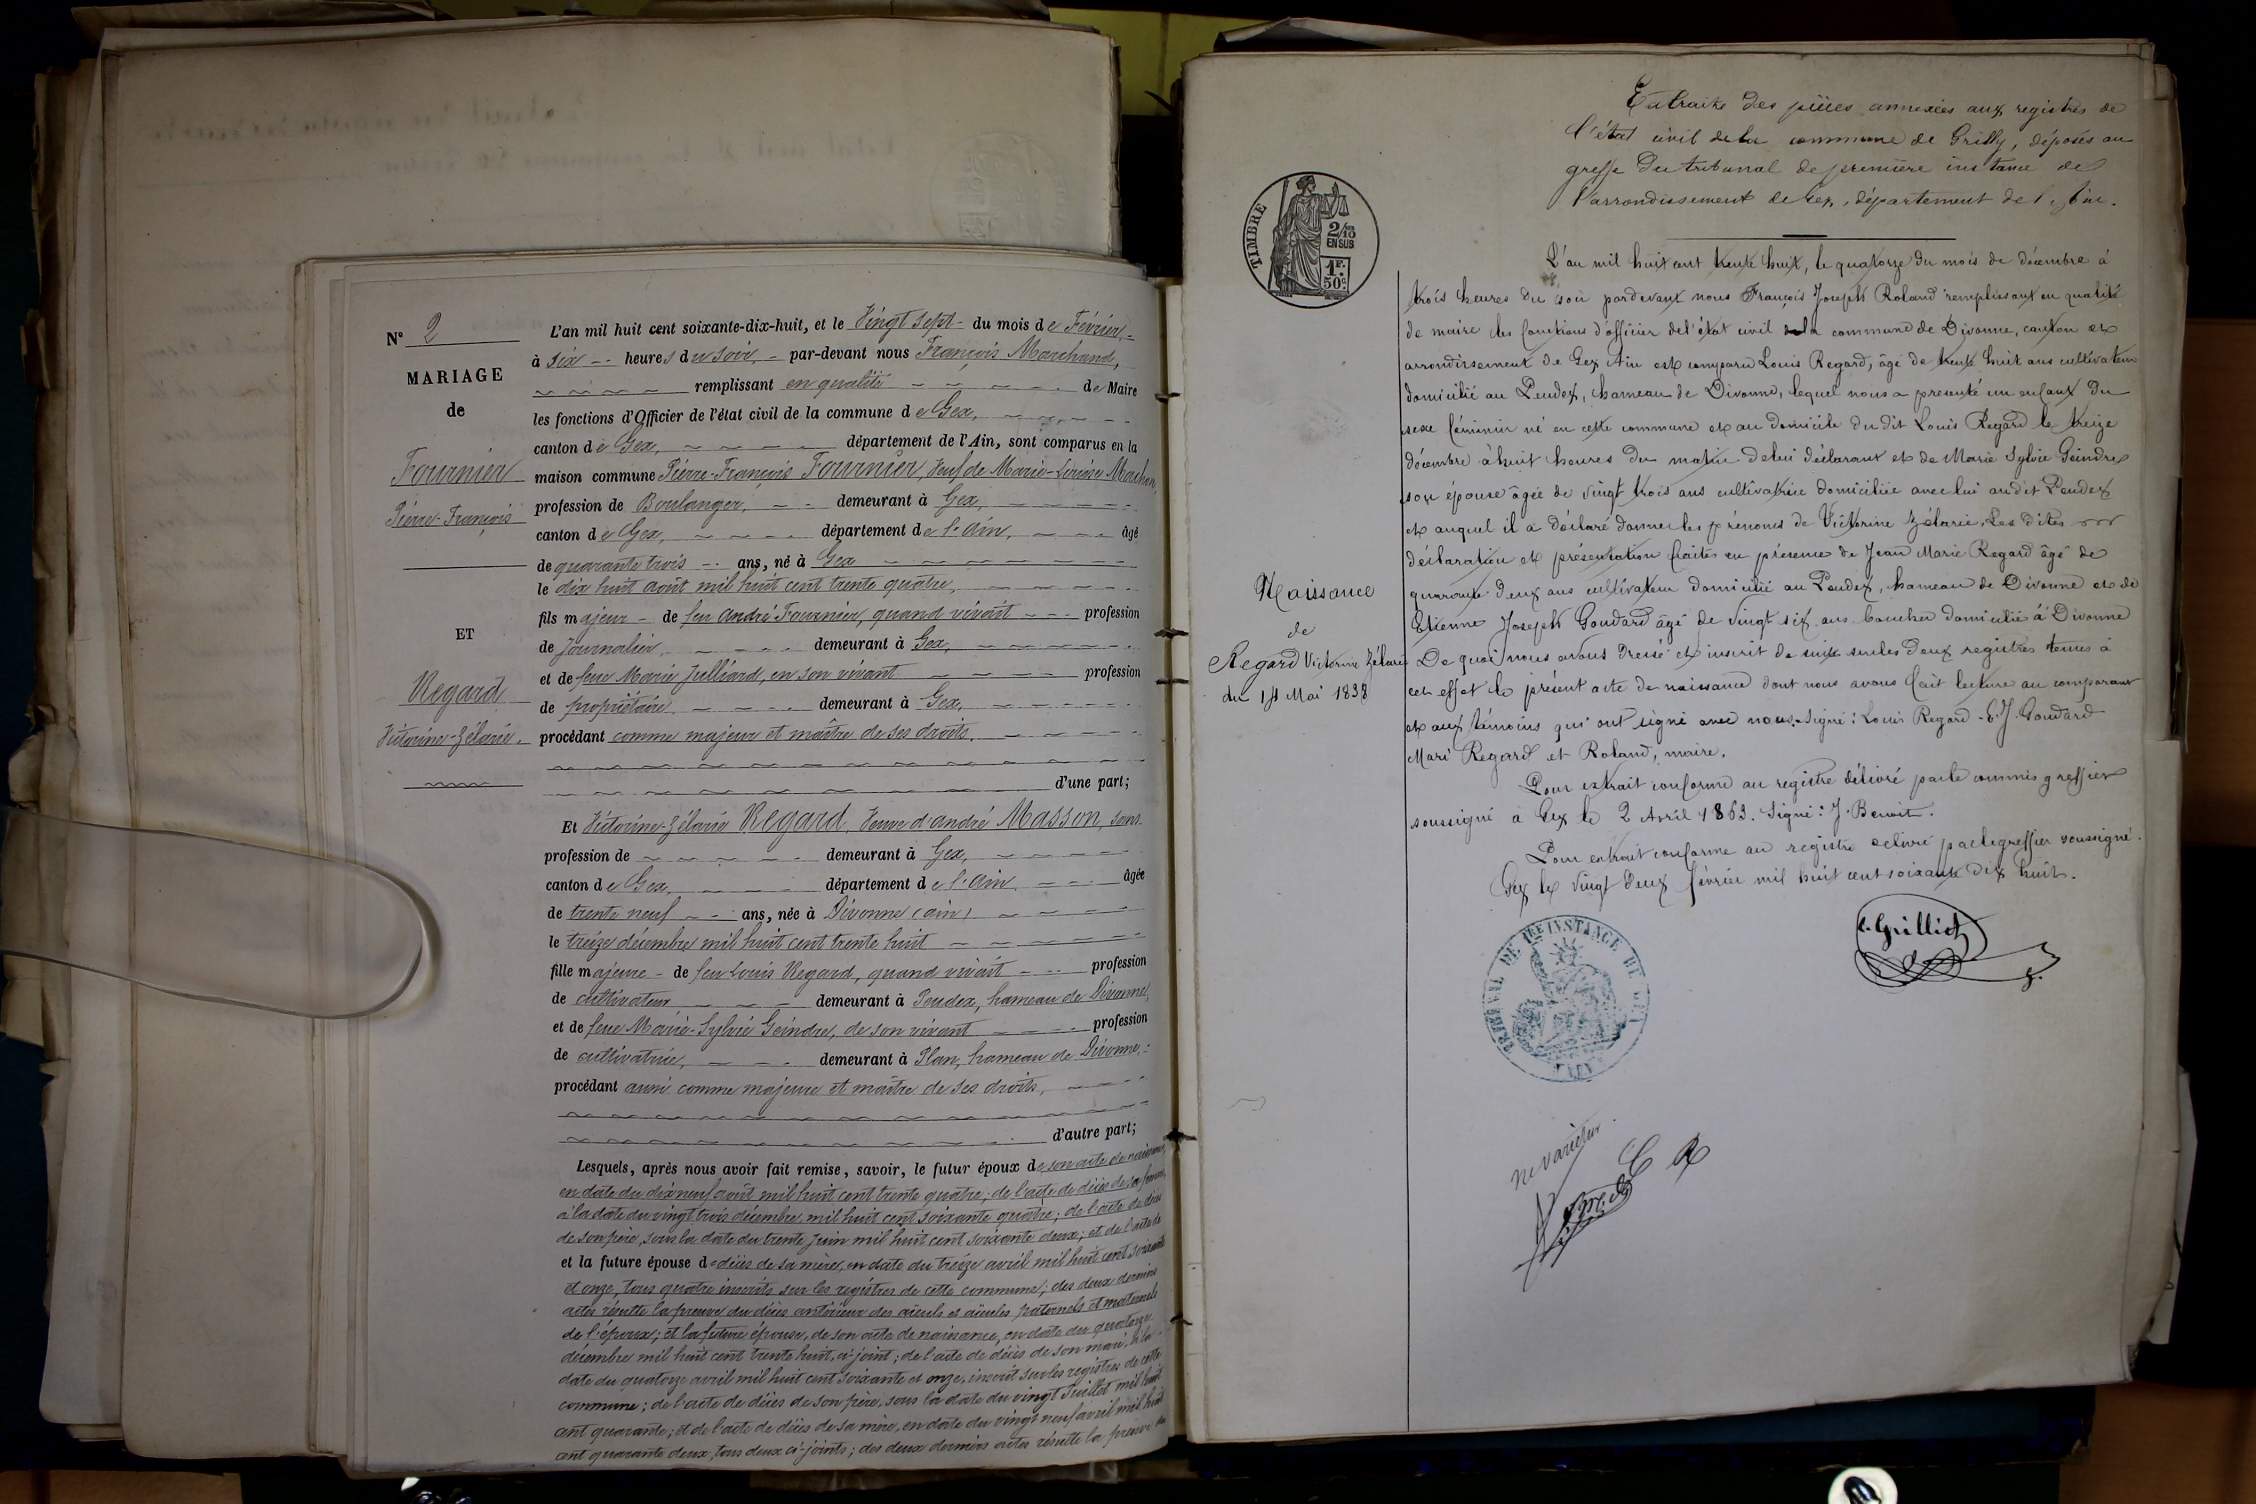 N° 2
MARIAGE
de
Fournier
Pierre-François
ET
Regard
Victorine-Zélarie.
L'an mil huit cent soixante-dix-huit, et le Vingt sept du mois de Février,
à six heures du soir, par-devant nous François Marchand,
remplissant en qualité de Maire
les fonctions d'Officier de l'état civil de la commune de Gex,
canton de Gex, département de l'Ain, sont comparus en la
maison commune Pierre-François Fournier, Veuf de Marie-Louise Marchan,
profession de Boulanger, demeurant à Gex,
canton de Gex, département de l'Ain, âgé
de quarante trois ans, né à Gex
le dix huit août mil huit cent trente quatre,
fils majeur de feu André Fournier, quand vivait profession
de Journalier, demeurant à Gex,
et de feue Marie Julliard, en son vivant profession
de propriétaire demeurant à Gex,
procédant comme majeur et maître de ses droits.
d'une part;
Et Victorine-Zélarie Regard, Veuve d'andré Masson, sans
profession de demeurant à Gex,
canton de Gex, département de l'Ain, âgée
de trente neuf ans, née à Divonne (ain)
le treize décembre mil huit cent trente huit
fille majeure de feu Louis Regard, quand vivait profession
de cultivateur demeurant à Peudex, hameau de Divonne,
et de feue Marie-Sylvie Geindre, de son vivant profession
de cultivatrice, demeurant à Plan, hameau de Divonne,
procédant aussi comme majeure et maître de ses droits,
d'autre part;
Lesquels, après nous avoir fait remise, savoir, le futur époux de son acte de naissance,
en date du dix neuf août mil huit cent trente quatre; de l'acte de décès de sa femme,
à la date du vingt trois décembre mil huit cent soixante quatre; de l'acte de décès
de son père, sous la date du trente juin mil huit cent soixante deux; et de l'acte de
et la future épouse d décès de sa mère, en date du treize avril mil huit cent soixante
et onze, tous quatre inscrits sur les registres de cette commune; des deux derniers
actes résulte la preuve du décès antérieur des aïeuls et aïeules paternels et maternels
de l'époux; et la future épouse, de son acte de naissance, en date du quatorze
décembre mil huit cent trente huit, ci-joint; de l'acte de décès de son mari, à la
date du quatorze avril mil huit cent soixante et onze, inscrit sur les registres de cette
commune; de l'acte de décès de son père, sous la date du vingt Juillet mil huit
cent quarante; et de l'acte de décès de sa mère, en date du vingt neuf avril mil huit
cent quarante deux, tous deux ci-joints; des deux derniers actes résulte la preuve
TIMBRE
2/10
EN SUS
1F.
50c.
Extraits des pièces annexées aux registres de
l'état civil de la commune de Grilly, déposés au
greffe du tribunal de première instance de
l'arrondissement de Gex, département de l'Ain.
Naissance
de
Regard Victorine Zélarie
du 14 Mai 1838
L'an mil huit cent trente huit, le quatorze du mois de décembre à
trois heures du soir pardevant nous François Joseph Roland remplissant en qualité
de maire les fonctions d'officier de l'état civil de la commune de Divonne, canton et
arrondissement de Gex Ain est comparu Louis Regard, âgé de trente huit ans cultivateur
domicilié au Peudex, hameau de Divonne, lequel nous a présenté un enfant du
sexe féminin né en cette commune et au domicile du dit Louis Regard le treize
décembre à huit heures du matin de lui déclarant et de Marie Sylvie Geindre
son épouse âgée de vingt trois ans cultivatrice domiciliée avec lui audit Peudex
et auquel il a déclaré donner les prénoms de Victorine Zélarie, Les dites
déclaration et présentation faites en présence de Jean Marie Regard âgé de
quarante deux ans cultivateur domicilié au Peudex, hameau de Divonne et de
Etienne Joseph Goudard âgé de vingt six ans boucher domicilié à Divonne
De quoi nous avons dressé et inscrit de suite sur les deux registres tenus à
cet effet le présent acte de naissance dont nous avons fait lecture au comparant
et aux témoins qui ont signé avec nous. Signé: Louis Regard - E. J. Goudard
Mari Regard et Roland, maire.
Pour extrait conforme au registre délivré par le commis greffier
soussigné à Gex le 2 Avril 1863. Signé: J. Benoit.
Pour extrait conforme au registre délivré par le greffier soussigné.
Gex le vingt deux février mil huit cent soixante dix huit.
C. Grilliet
TRIBUNAL DE 1RE INSTANCE DE GEX
(AIN)
ne varietur
C R